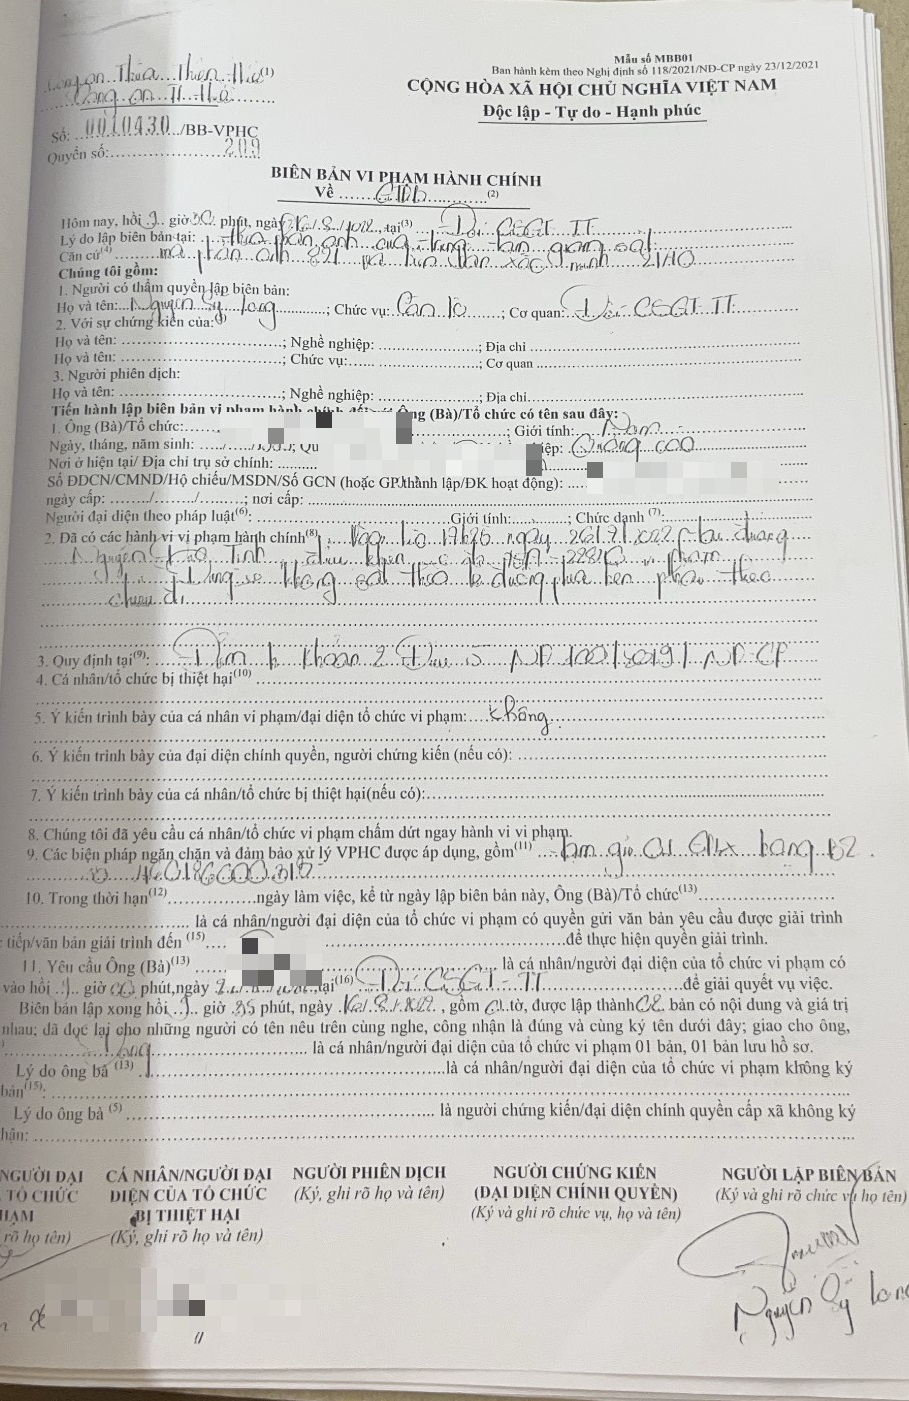 Mẫu số MBB01
Ban hành kèm theo Nghị định số 118/2021/NĐ-CP ngày 23/12/2021
Thừa Thiên Huế(1)
CỘNG HÒA XÃ HỘI CHỦ NGHĨA VIỆT NAM
Độc lập - Tự do - Hạnh phúc
Số: 0010430 /BB-VPHC
Quyển số: 209
BIÊN BẢN VI PHẠM HÀNH CHÍNH
Về GTĐB (2)
Hôm nay, hồi 9 giờ 30 phút, ngày /8/2022, tại(3) Đội CSGT TT
Lý do lập biên bản tại: phản ánh của trung tâm giám sát
Căn cứ(4) phản ánh 821 xác minh 2110
Chúng tôi gồm:
1. Người có thẩm quyền lập biên bản:
Họ và tên: Nguyễn Sỹ Long; Chức vụ: Cán bộ; Cơ quan: Đội CSGT TT
2. Với sự chứng kiến của:(5)
Họ và tên: ; Nghề nghiệp: ; Địa chỉ
Họ và tên: ; Chức vụ: ; Cơ quan
3. Người phiên dịch:
Họ và tên: ; Nghề nghiệp: ; Địa chỉ
Tiến hành lập biên bản vi phạm hành chính đối với Ông (Bà)/Tổ chức có tên sau đây:
1. Ông (Bà)/Tổ chức: ; Giới tính: Nam
Ngày, tháng, năm sinh: Qu iệp: Quảng cáo
Nơi ở hiện tại/ Địa chỉ trụ sở chính:
Số ĐDCN/CMND/Hộ chiếu/MSDN/Số GCN (hoặc GP thành lập/ĐK hoạt động):
ngày cấp: / / ; nơi cấp:
Người đại diện theo pháp luật(6): Giới tính: ; Chức danh (7):
2. Đã có các hành vi vi phạm hành chính(8): Vào lúc 17h26 ngày 26/7/2022 tại đường
điều khiển vi phạm
xe không sát theo lề đường phía bên phải theo
chiều đi
3. Quy định tại(9): Điểm b khoản 2 Điều 5 NĐ 100/2019/NĐ-CP
4. Cá nhân/tổ chức bị thiệt hại(10)
5. Ý kiến trình bày của cá nhân vi phạm/đại diện tổ chức vi phạm: Không
6. Ý kiến trình bày của đại diện chính quyền, người chứng kiến (nếu có):
7. Ý kiến trình bày của cá nhân/tổ chức bị thiệt hại(nếu có):
8. Chúng tôi đã yêu cầu cá nhân/tổ chức vi phạm chấm dứt ngay hành vi vi phạm.
9. Các biện pháp ngăn chặn và đảm bảo xử lý VPHC được áp dụng, gồm(11) tạm giữ 01 GPLX hạng B2
10. Trong thời hạn(12) ngày làm việc, kể từ ngày lập biên bản này, Ông (Bà)/Tổ chức(13)
là cá nhân/người đại diện của tổ chức vi phạm có quyền gửi văn bản yêu cầu được giải trình
tiếp/văn bản giải trình đến (15) để thực hiện quyền giải trình.
11. Yêu cầu Ông (Bà)(13) là cá nhân/người đại diện của tổ chức vi phạm có
vào hồi 9 giờ 00 phút, ngày tại(16) Đội CSGT TT để giải quyết vụ việc.
Biên bản lập xong hồi 9 giờ 35 phút, ngày /8/2022, gồm 01 tờ, được lập thành 02 bản có nội dung và giá trị
nhau; đã đọc lại cho những người có tên nêu trên cùng nghe, công nhận là đúng và cùng ký tên dưới đây; giao cho ông,
là cá nhân/người đại diện của tổ chức vi phạm 01 bản, 01 bản lưu hồ sơ.
Lý do ông bà (13) là cá nhân/người đại diện của tổ chức vi phạm không ký
bản(15):
Lý do ông bà (5) là người chứng kiến/đại diện chính quyền cấp xã không ký
hận:
NGƯỜI ĐẠI CÁ NHÂN/NGƯỜI ĐẠI NGƯỜI PHIÊN DỊCH NGƯỜI CHỨNG KIẾN NGƯỜI LẬP BIÊN BẢN
TỔ CHỨC DIỆN CỦA TỔ CHỨC (Ký, ghi rõ họ và tên) (ĐẠI DIỆN CHÍNH QUYỀN) (Ký và ghi rõ chức vụ họ tên)
HẠM BỊ THIỆT HẠI (Ký và ghi rõ chức vụ, họ và tên)
rõ họ tên) (Ký, ghi rõ họ và tên)
Nguyễn Sỹ Long